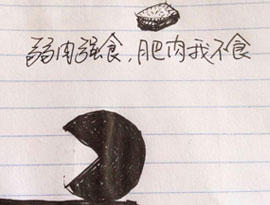 弱肉强食,肥肉我不食